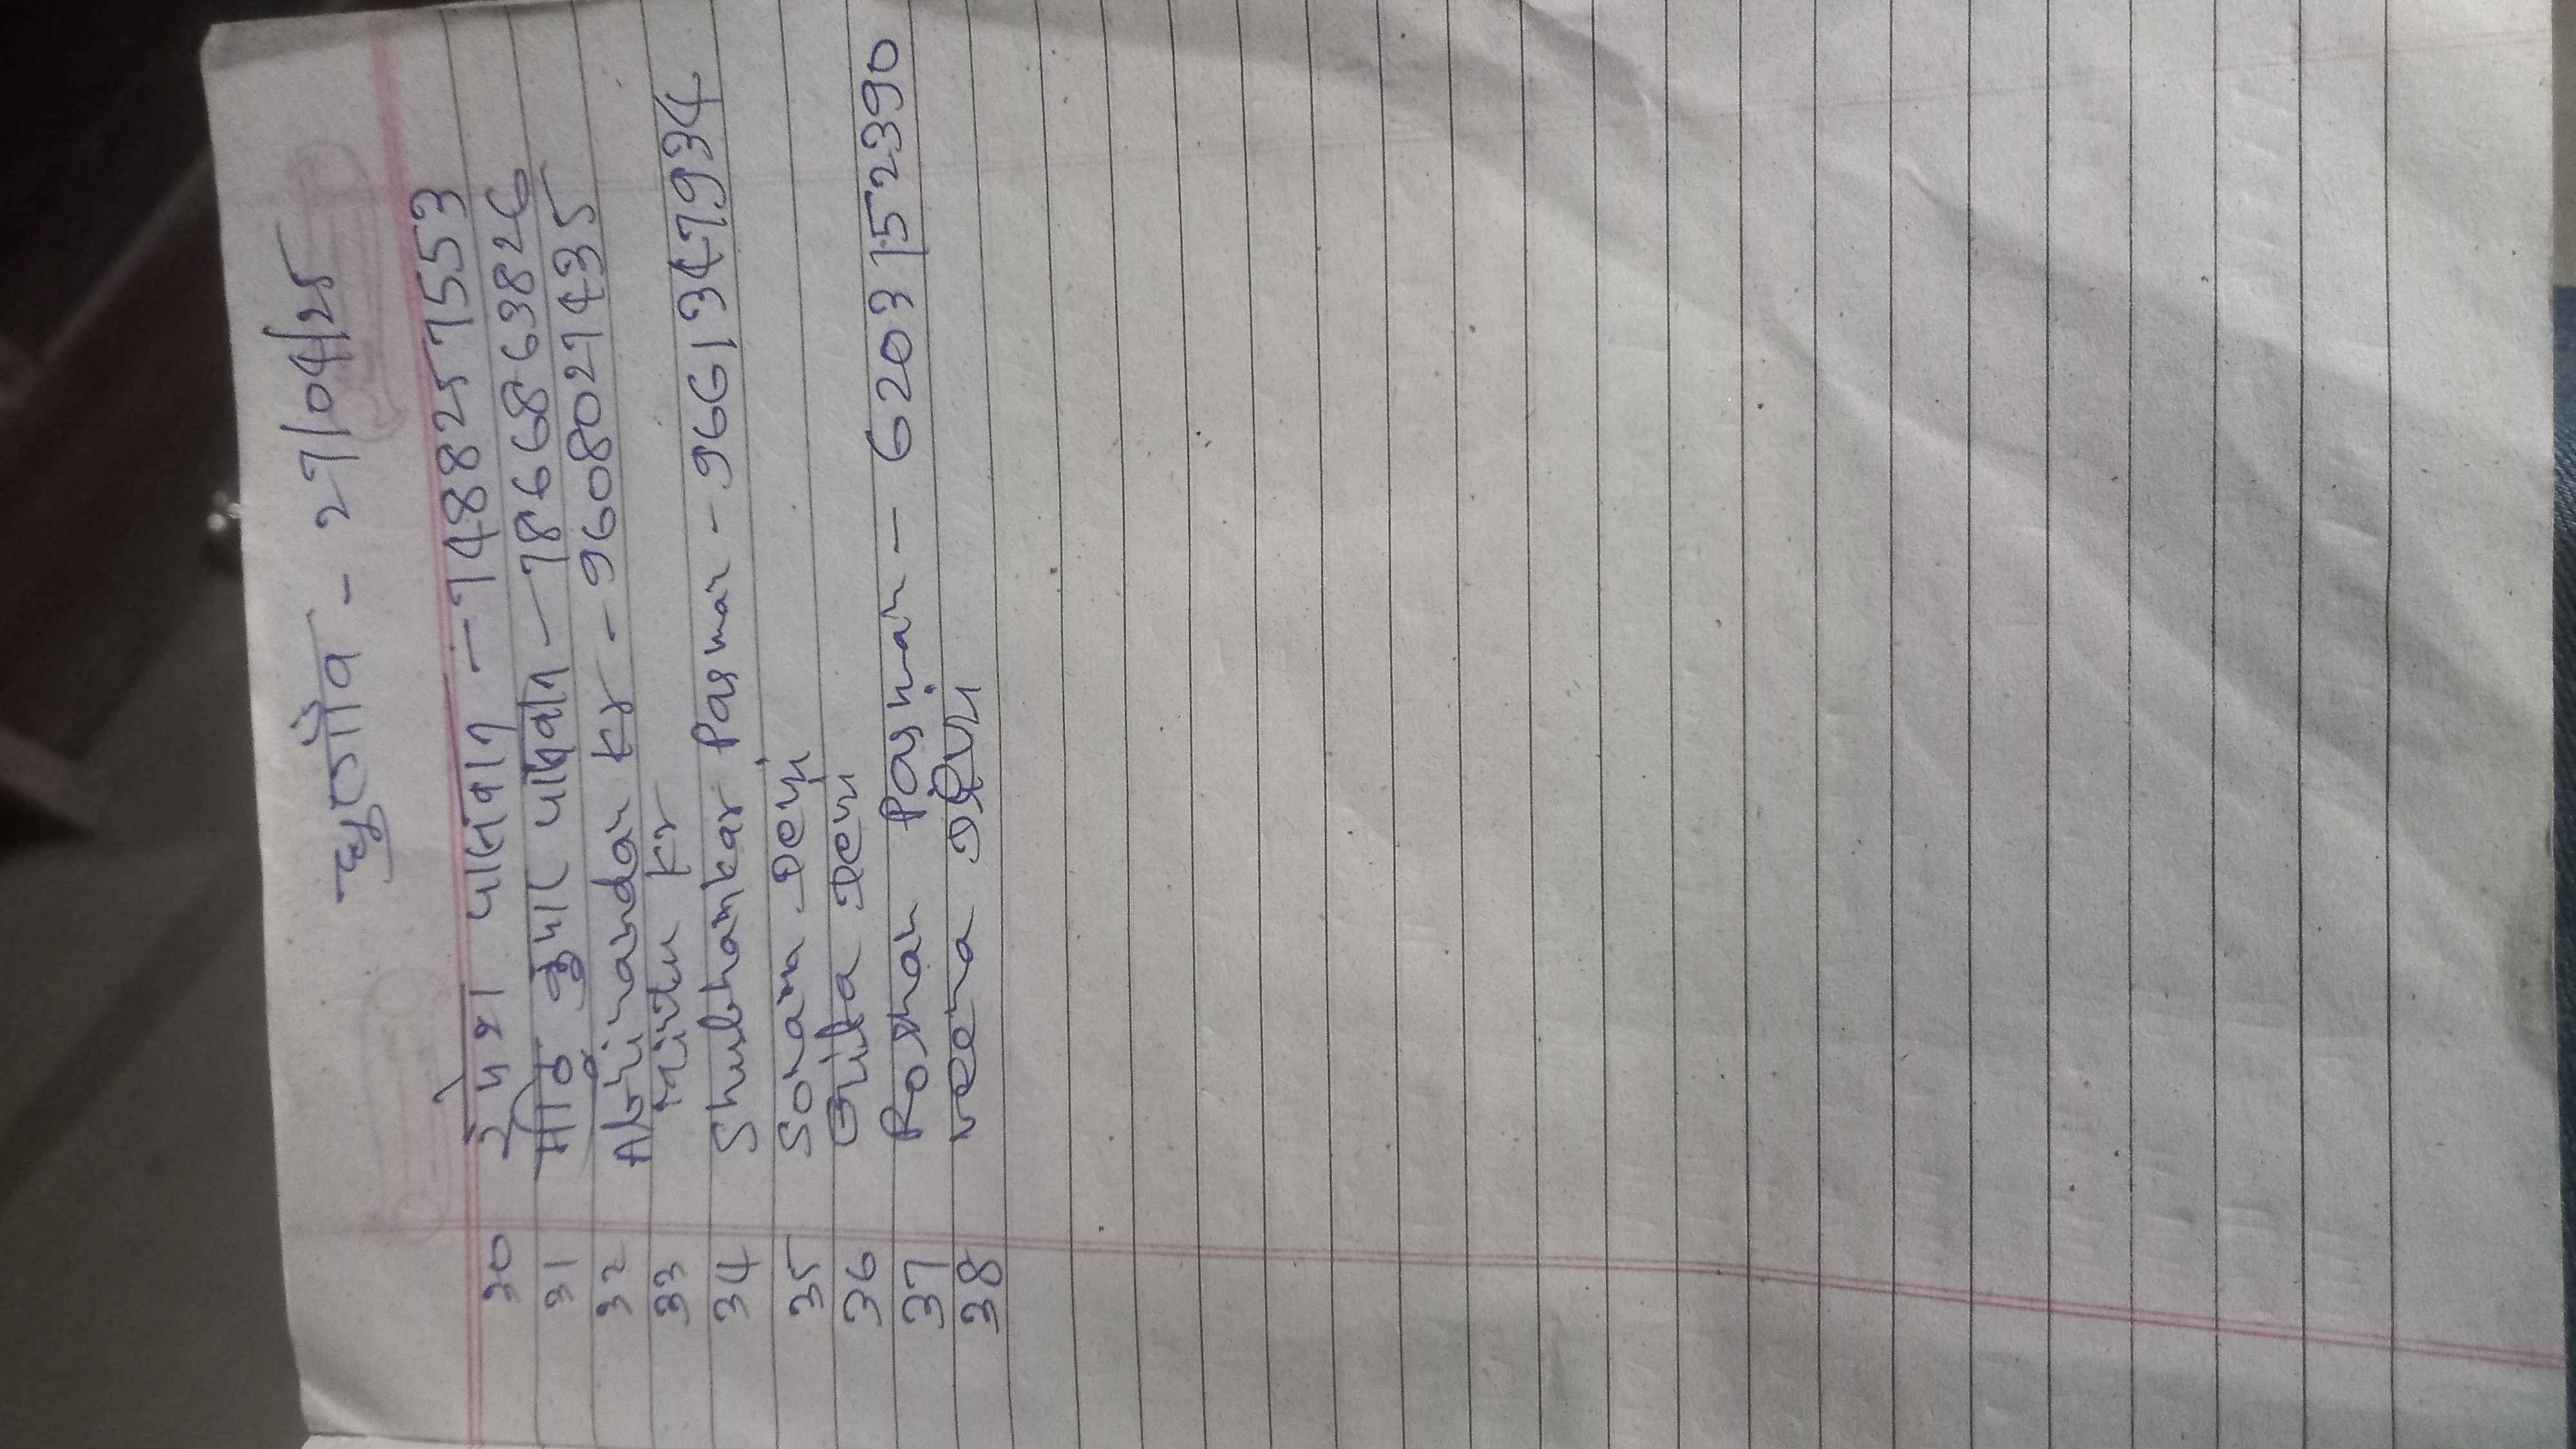 चुठगाँव - 27/04/25
30 रमेश पासवान - 7488257553
31 मोहित कुमार पासवान - 7866863826
32 Abhinandan Kr - 9608027435
33 Mintu Kr
34 Shubhankar Pasman - 9661347934
35 Sonam Devi
36 Gita Devi
37 Roshan Pasman - 6203152390
38 veena Devi